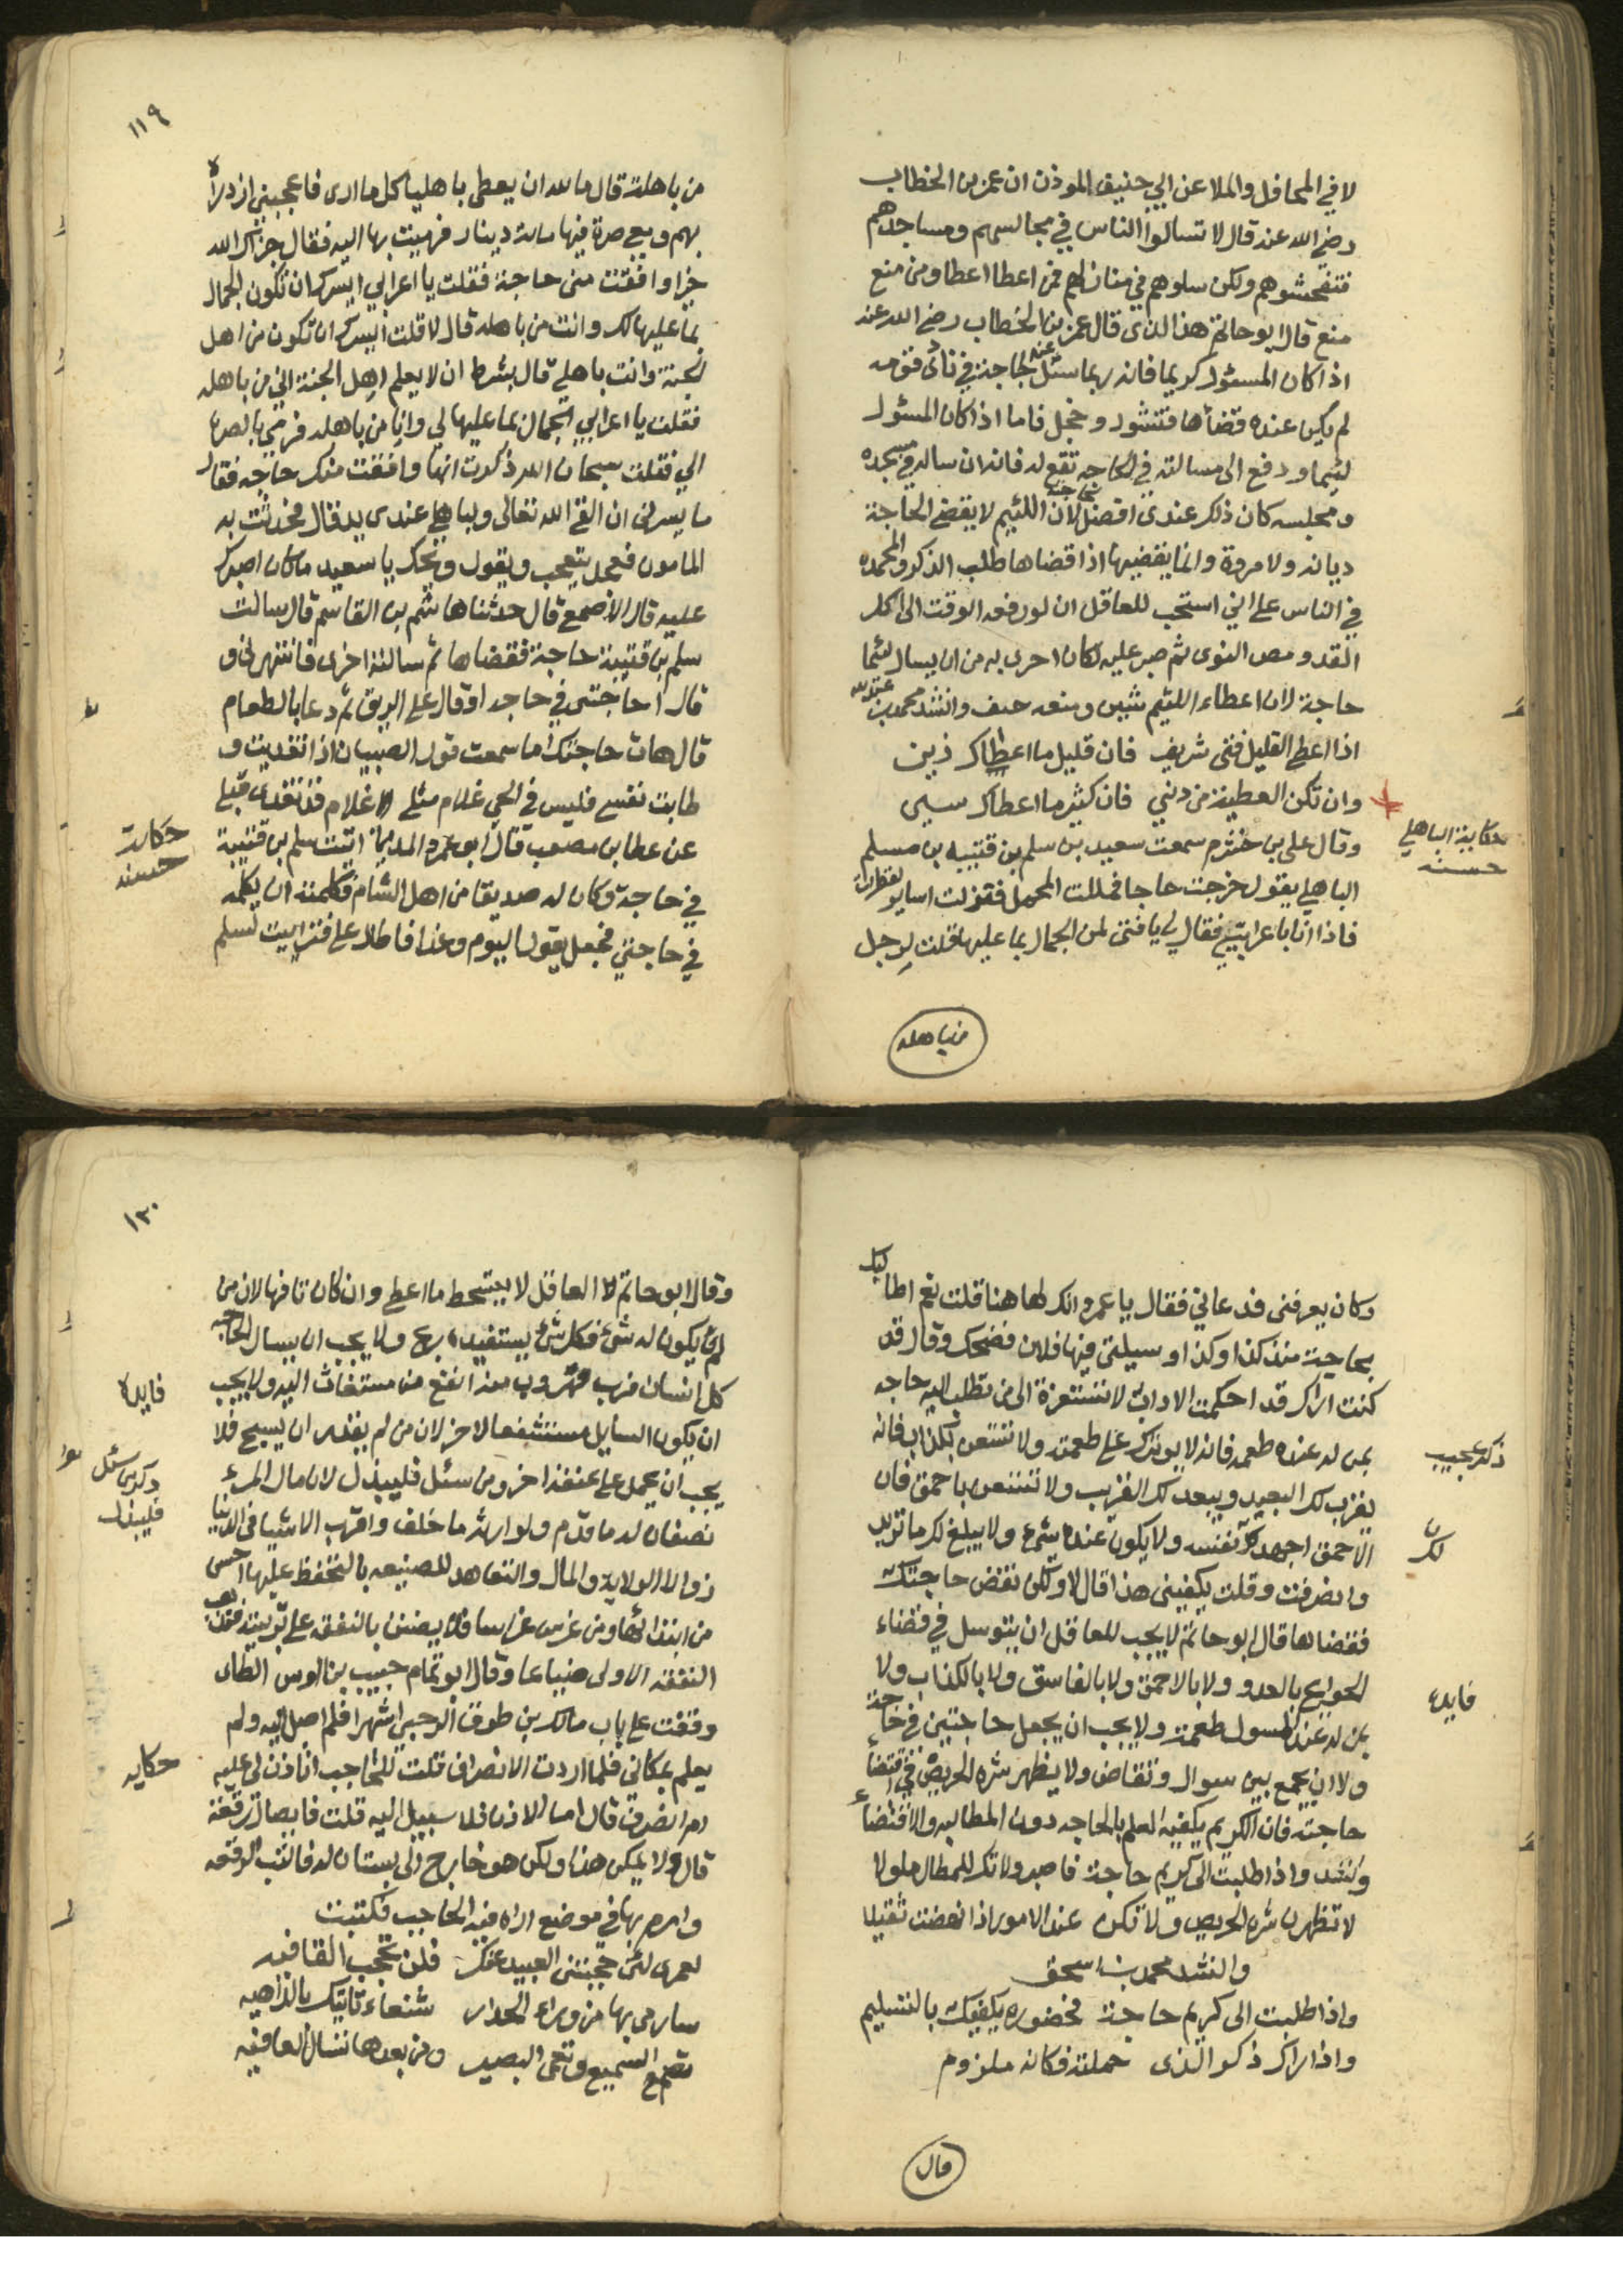 لا في المحافل والملا عن ابي حنيف الموذن ان عمر بن الخطاب
رضي الله عنه قال لا تسالوا الناس في مجالسهم ومساجدهم
فتفحشوهم ولكن سلوهم في منازلهم فمن اعطا اعطا ومن منع
منع قال ابو حاتم هذا الذى قال عمر بن الخطاب رضي الله عنه
اذا كان المسئول كريما فانه ربما سئل عنه لحاجة في نادى قومه
لم يكن عنده قضاها فتشور وخجل فاما اذا كان المسئول
لئيما ودفع الى مسالته في الحاجه تقع له فانه ان ساله في مسجده
ومجلسه كان ذلك عندى اقضى لحاجته لان اللئيم لا يقضي الحاجة
ديانه ولا مروة وانما يقضيها اذا قضاها طلب الذكر والمحمده
في الناس على اني استحب للعاقل ان لو دفعه الوقت الى اكل
القد ومص النوى ثم صبر عليه لكان احرى به من ان يسال لئيما
حاجة لان اعطاء اللئيم شين ومنعه حتف وانشد محمد بن عبد الله
اذا اعطى القليل فتى شريف فان قليل ما اعطاك زين
وان تكن العطية من دني فان كثير ما اعطاك شين
حكاية الباهلي
حسنه
وقال علي بن خشرم سمعت سعيد بن سلم بن قتيبه بن مسلم
الباهلي يقول خرجت حاجا فمللت المحمل فنزلت اساير القطرات
فاذا انا باعرابي فقال لي يا فتى لمن الجمال بما عليها قلت لرجل
من باهله
١١٩
من باهلة قال ما لله ان يعطى باهليا كل ما ارى فاعجبني ازدراه
بهم ومعي صرة فيها مائة دينار فرميت بها اليه فقال جزاك الله
خيرا وافقت منى حاجة فقلت يا اعرابي ايسرك ان تكون الجمال
بما عليها لك وانت من باهله قال لا قلت ايسرك ان تكون من اهل
الجنة وانت باهلي قال بشرط ان لا يعلم اهل الجنة اني من باهله
فقلت يا اعرابي الجمال بما عليها لي وانا من باهله فرمى بالصره
الي فقلت سبحان الله ذكرت انها وافقت منك حاجه فقال
ما يسرنى ان القى الله تعالى ولباهلي عندى يد قال فحدثت به
المامون فجعل يتعجب ويقول ويحك يا سعيد ما كان اصبرك
عليه قال الاصمعي قال حدثنا هاشم بن القاسم قال سالت
سلم بن قتيبة حاجة فقضاها ثم سالته اخرى فانتهرنى و
قال احاجتى في حاجه او قال على الريق ثم دعا بالطعام
قال هات حاجتك اما سمعت قول الصبيان اذا تغديت و
طابت نفسي فليس في الحي غلام مثلي الا غلام قد تغدى قبلي
حكاية
حسنه
عن عطا بن مصعب قال ابو عمرو المديني اتيت سلم بن قتيبة
في حاجة وكان له صديقا من اهل الشام فكلمته ان يكلمه
في حاجتي فجعل يقول اليوم وغدا فاطال علي فتراييت لسلم
وكان يعرفنى فدعاني فقال يا عمرو انك لهاهنا قلت نعم اطالبك
بحاجة منذ كذا وكذا وسيلتى فيها فلان فضحك وقال قد
كنت اراك قد احكمت الاداب لا تستعن الى من تطلب اليه حاجه
ذكر عجيب
بمن له عنده طعمه فانه لا يوثرك على طعمته ولا تستعن بكذاب فانه
يقرب لك البعيد ويبعد لك القريب ولا تستعن باحمق فان
الاحمق اجهد لك نفسه ولا يكون عنده شيء ولا يبلغ لك ما تريد
لك
وانصرفت وقلت يكفينى هذا قال لا ولكن نقض حاجتك
فقضاها قال ابو حاتم لا يجب للعاقل ان يتوسل في قضاء
الحوايج بالعدو ولا بالاحمق ولا بالفاسق ولا بالكذاب ولا
فايده
بمن له عند المسول طعمة ولا يجب ان يجعل حاجتين في حاجة
ولا ان يجمع بين سوال وتقاض ولا يظهر شره الحريص في اقتضاء
حاجته فان الكريم يكفيه العلم بالحاجه دون المطالبه والاقتضاء
وانشد واذا طلبت الى كريم حاجة فاصبر ولا تك للمطال ملولا
لا تظهرن شره الحريص ولا تكن عند الامور اذا نهضت ثقيلا
وانشد محمد بن اسحق
واذا طلبت الى كريم حاجة فحضوره يكفيك بالتسليم
واذا اراك ذكر الذى حملته فكانه ملزوم
قال
١٢٠
وقال ابو حاتم العاقل لا يتسخط ما اعطى وان كان تافها لان من
لم يكون له شئ فكل شئ يستفيده ربح ولا يجب ان يسال الحاجه
كل انسان فرب مهروب منه انفع من مستغاث اليه ولا يجب
فايده
ان يكون السايل مستشفعا لاخر لان من لم يقدر ان يسبح فلا
يجب ان يحمل على عنقه اخر ومن سئل فليبذل لان مال المرء
ذكر من سئل
فليبذل
نصفان له ما قدم ولوارثه ما خلف واقرب الاشيا في الدنيا
زوالا الولاية والمال والتعاهد للصنيعه بالتحفظ عليها احسن
من ابتدائها ومن غرس غراسا فلا يضنن بالنفقه على تربيته فتذهب
النفقه الاولى ضياعا وقال ابو تمام حبيب بن اوس الطاى
وقفت على باب مالك بن طوق الرحبي اشهرا فلم اصل اليه ولم
يعلم بمكانى فلما اردت الانصراف قلت للحاجب اتاذن لى عليه
حكايه
ام انصرف قال اما الاذن فلا سبيل اليه قلت فايصال رقعة
قال ولا يمكن هذا ولكن هو خارج الى بستان له فاكتب الرقعه
وارم بها في موضع اراه فيه الحاجب فكتبت
لعمرى لئن حجبتنى العبيد عنك فلن تحجب القافيه
سارمى بها من وراء الجدار شنعاء تاتيك بالداهيه
تصم السميع وتعمى البصير ومن بعدها تسال العافيه